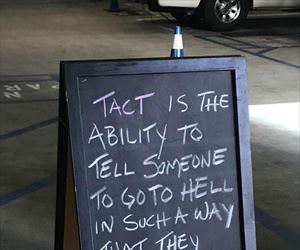 TACT IS THE
ABILITY TO
TELL SOMEONE
TO GO TO HELL
IN SUCH A WAY
THAT THEY